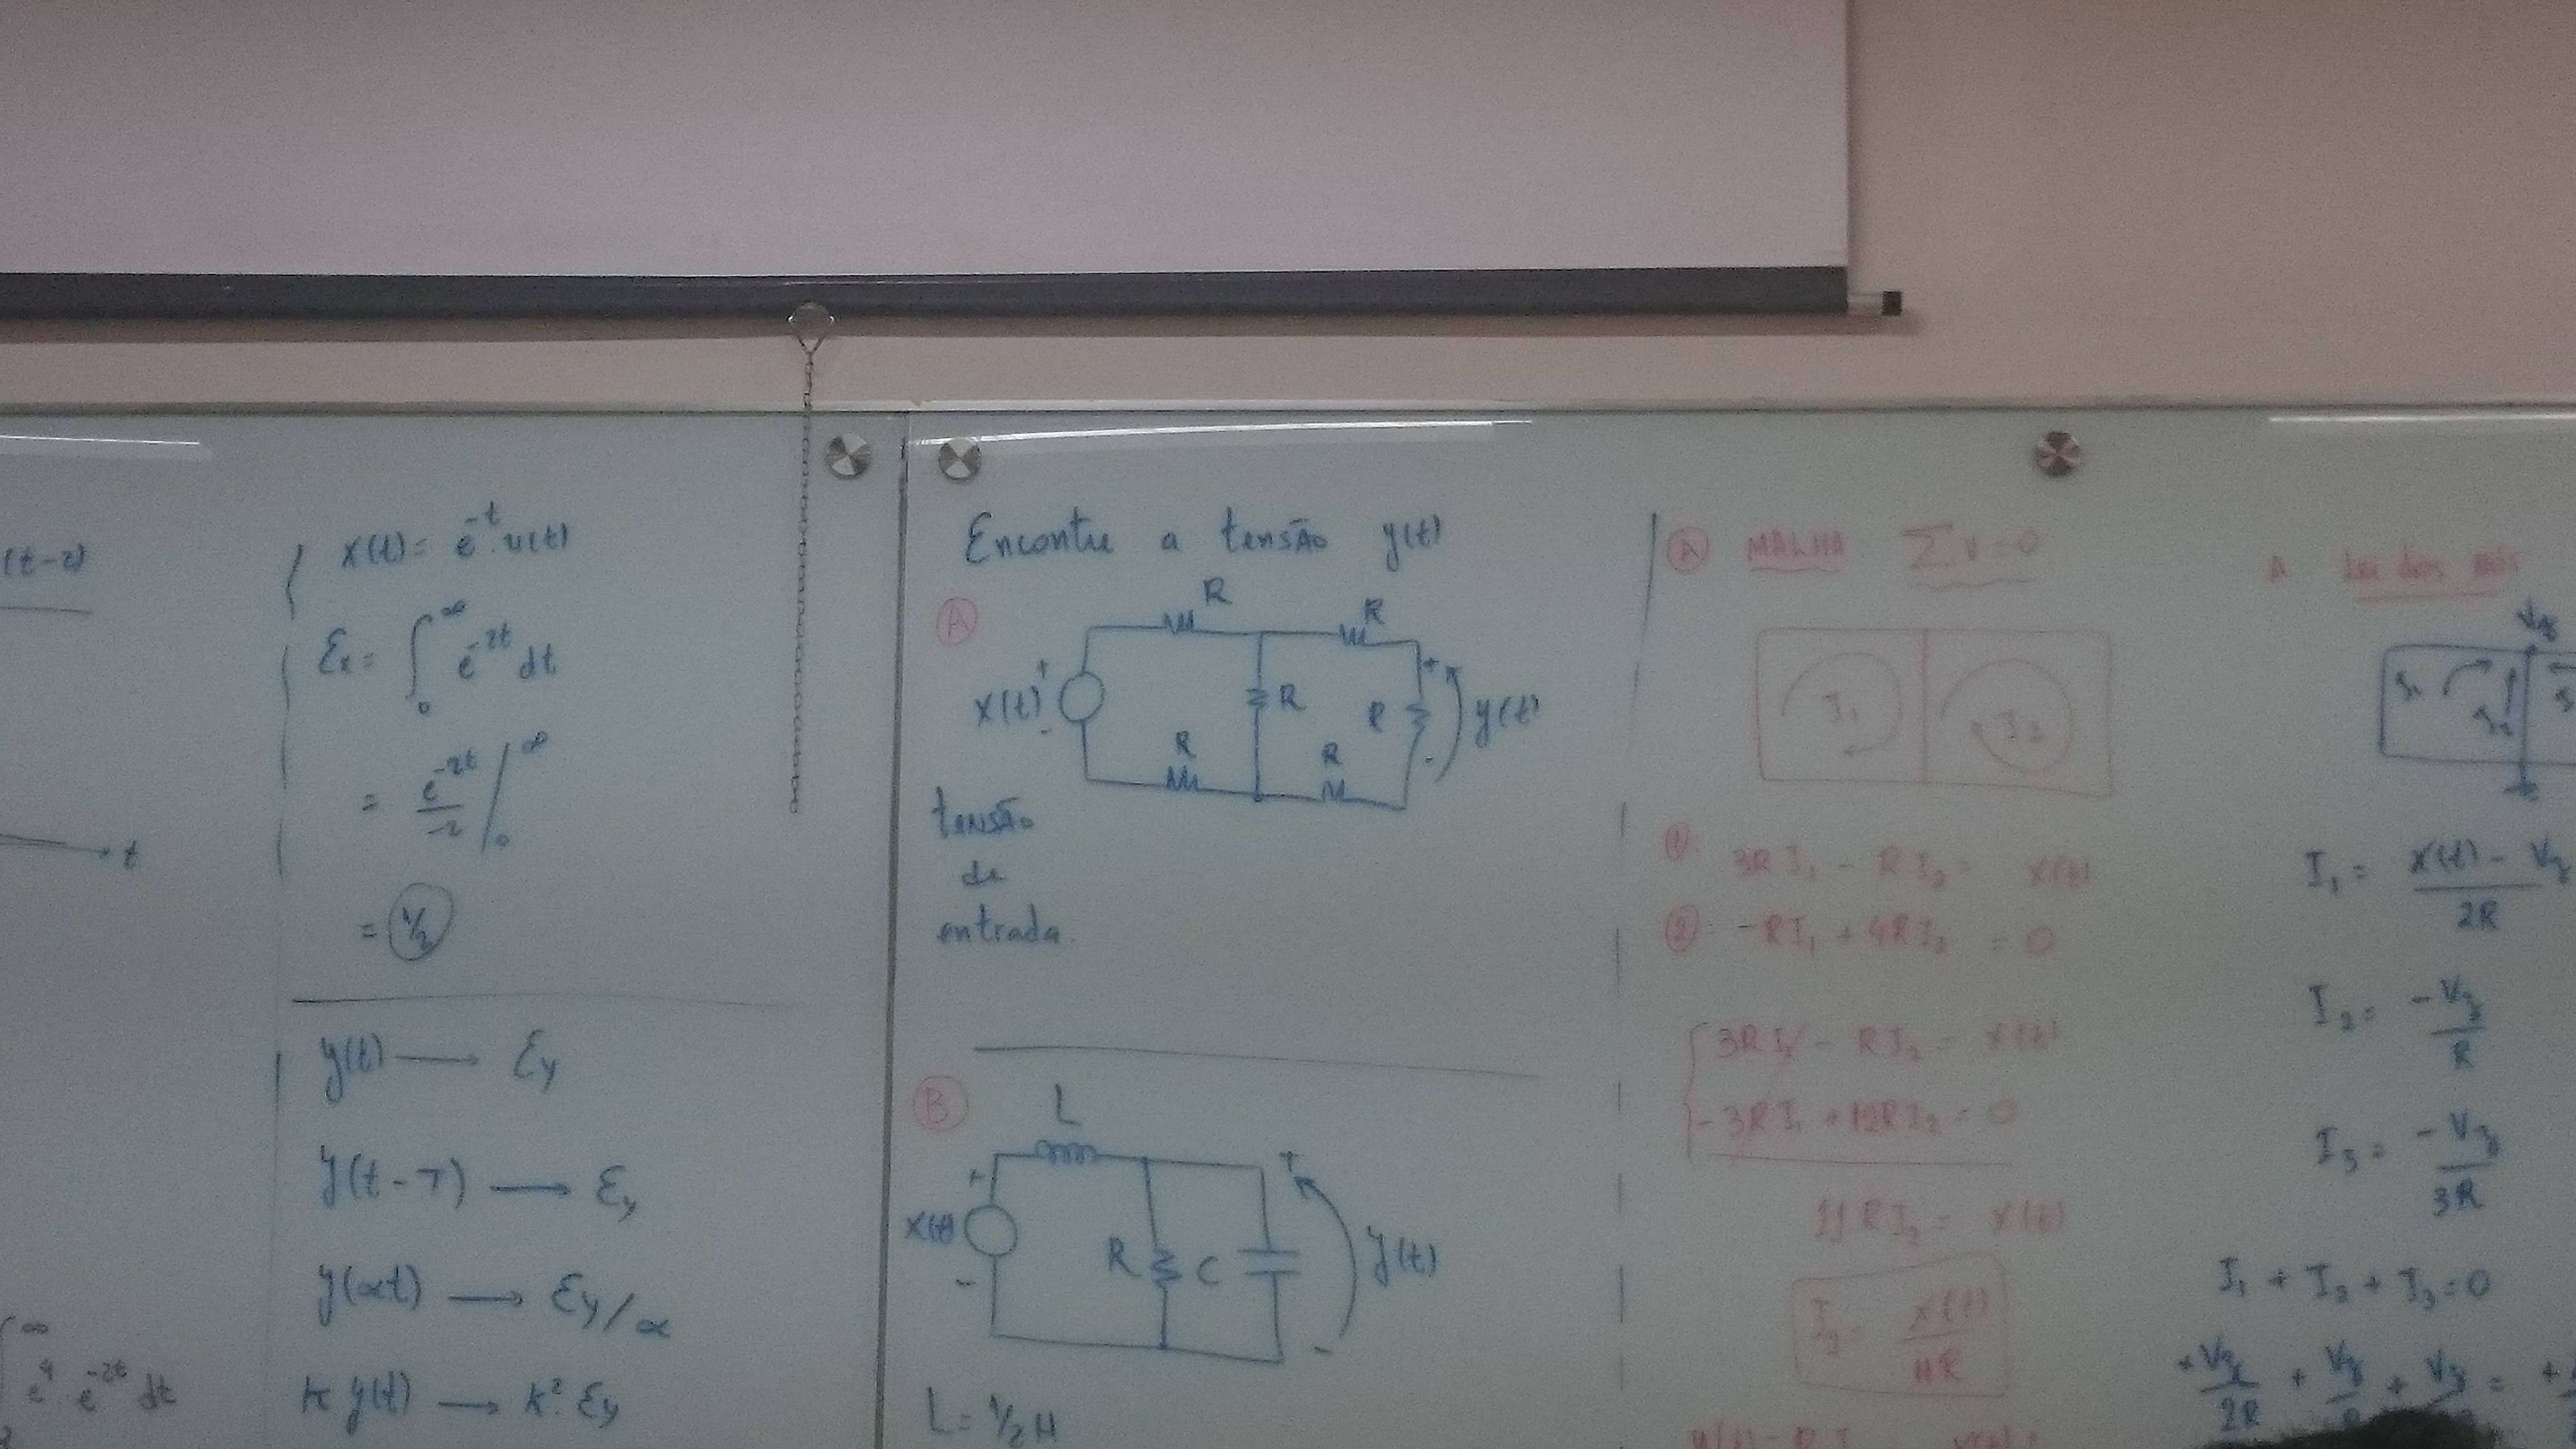 (t-2)
t
∞
e⁴ e^-2t dt
x(t) = e^-t . u(t)
Ex = ∫₀^∞ e^-2t dt
= e^-2t / -2 |₀^∞
= 1/2
y(t) → Ey
y(t - T) → Ey
y(αt) → Ey/α
K y(t) → K² . Ey
Encontre a tensão y(t)
A
R R
x(t) + - R R + - y(t)
R R
tensão
de
entrada
B
L
x(t) + - R C + - y(t)
L = 1/2 H
A MALHA: ΣV = 0
I₁ I₂
1: 3RI₁ - RI₂ = x(t)
2: -RI₁ + 4RI₂ = 0
3RI₁ - RI₂ = x(t)
-3RI₁ + 12RI₂ = 0
11RI₂ = x(t)
I₂ = x(t) / 11R
A Lei dos nós
I₁ = x(t) - Vy / 2R
I₂ = -Vy / R
I₃ = -Vy / 3R
I₁ + I₂ + I₃ = 0